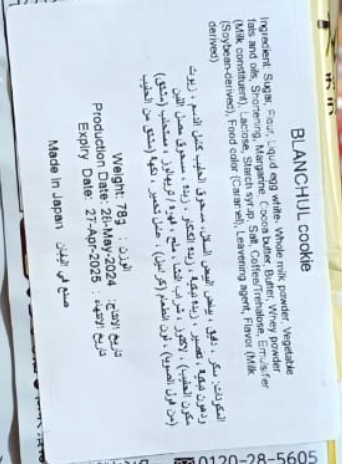 BLANCHUL cookie
Ingredient: Sugar, Flour, Liquid egg white, Whole milk powder, Vegetable
fats and oils, Shortening, Margarine, Cocoa butter, Butter, Whey powder
(Milk constituent), Lactose, Starch syrup, Salt, Coffee/Trehalose, Emulsifier
(Soybean-derived), Food color (Caramel), Leavening agent, Flavor (Milk
derived)
المكونات: سكر، دقيق، بياض البيض السائل، مسحوق الحليب كامل الدسم، زيوت
Weight: 78g : الوزن
Production Date: 28-May-2024 تاريخ الإنتاج:
Expiry Date: 27-Apr-2025 تاريخ الانتهاء:
Made in Japan صنع في اليابان
0120-28-5605